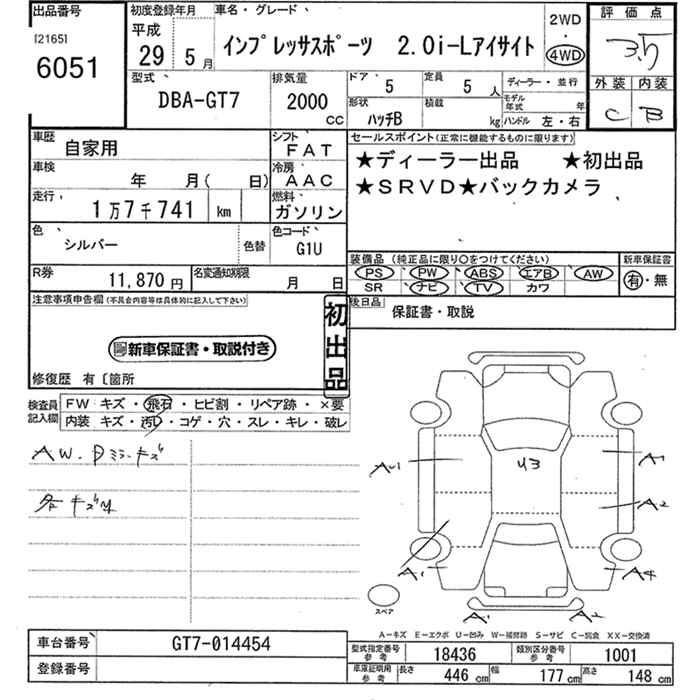 出品番号
[2165]
6051
初度登録年月
平成
29 5月
車名・グレード
インプレッサスポーツ 2.0i-Lアイサイト
2WD
・
4WD
評価点
3.5
外装 内装
C B
型式
DBA-GT7
排気量
2000
cc
ドア 5
定員 5 人
形状 ハッチB
積載 kg
ディーラー・並行
モデル年式 年
ハンドル 左・右
車歴 自家用
シフト FAT
車検 年 月( 日)
冷房 AAC
走行 1万7千741 km
燃料 ガソリン
色 シルバー
色替
色コード G1U
R券 11,870円
名変通知期限 月 日
セールスポイント(正常に機能するものに限ります)
★ディーラー出品 ★初出品
★SRVD★バックカメラ
装備品(純正品に限り○をつけてください)
PS PW ABS エアB AW
SR ナビ TV カワ
新車保証書
有・無
後日品 保証書・取説
注意事項申告欄(不具合内容等は具体的に記入して下さい)
新車保証書・取説付き
初出品
修復歴 有〔箇所
検査員記入欄
FW キズ・飛石・ヒビ割・リペア跡・×要
内装 キズ・汚レ・コゲ・穴・スレ・キレ・破レ
AW.Dミラーキズ
U3
A1
A2
A1
A4
A1
A2
スペア
A-キズ E-エクボ U-凹み W-補修跡 S-サビ C-腐食 XX-交換済
車台番号 GT7-014454
登録番号
型式指定番号 参考 18436
類別区分番号 参考 1001
車庫証明用 参考 長さ 446 cm 幅 177 cm 高さ 148 cm